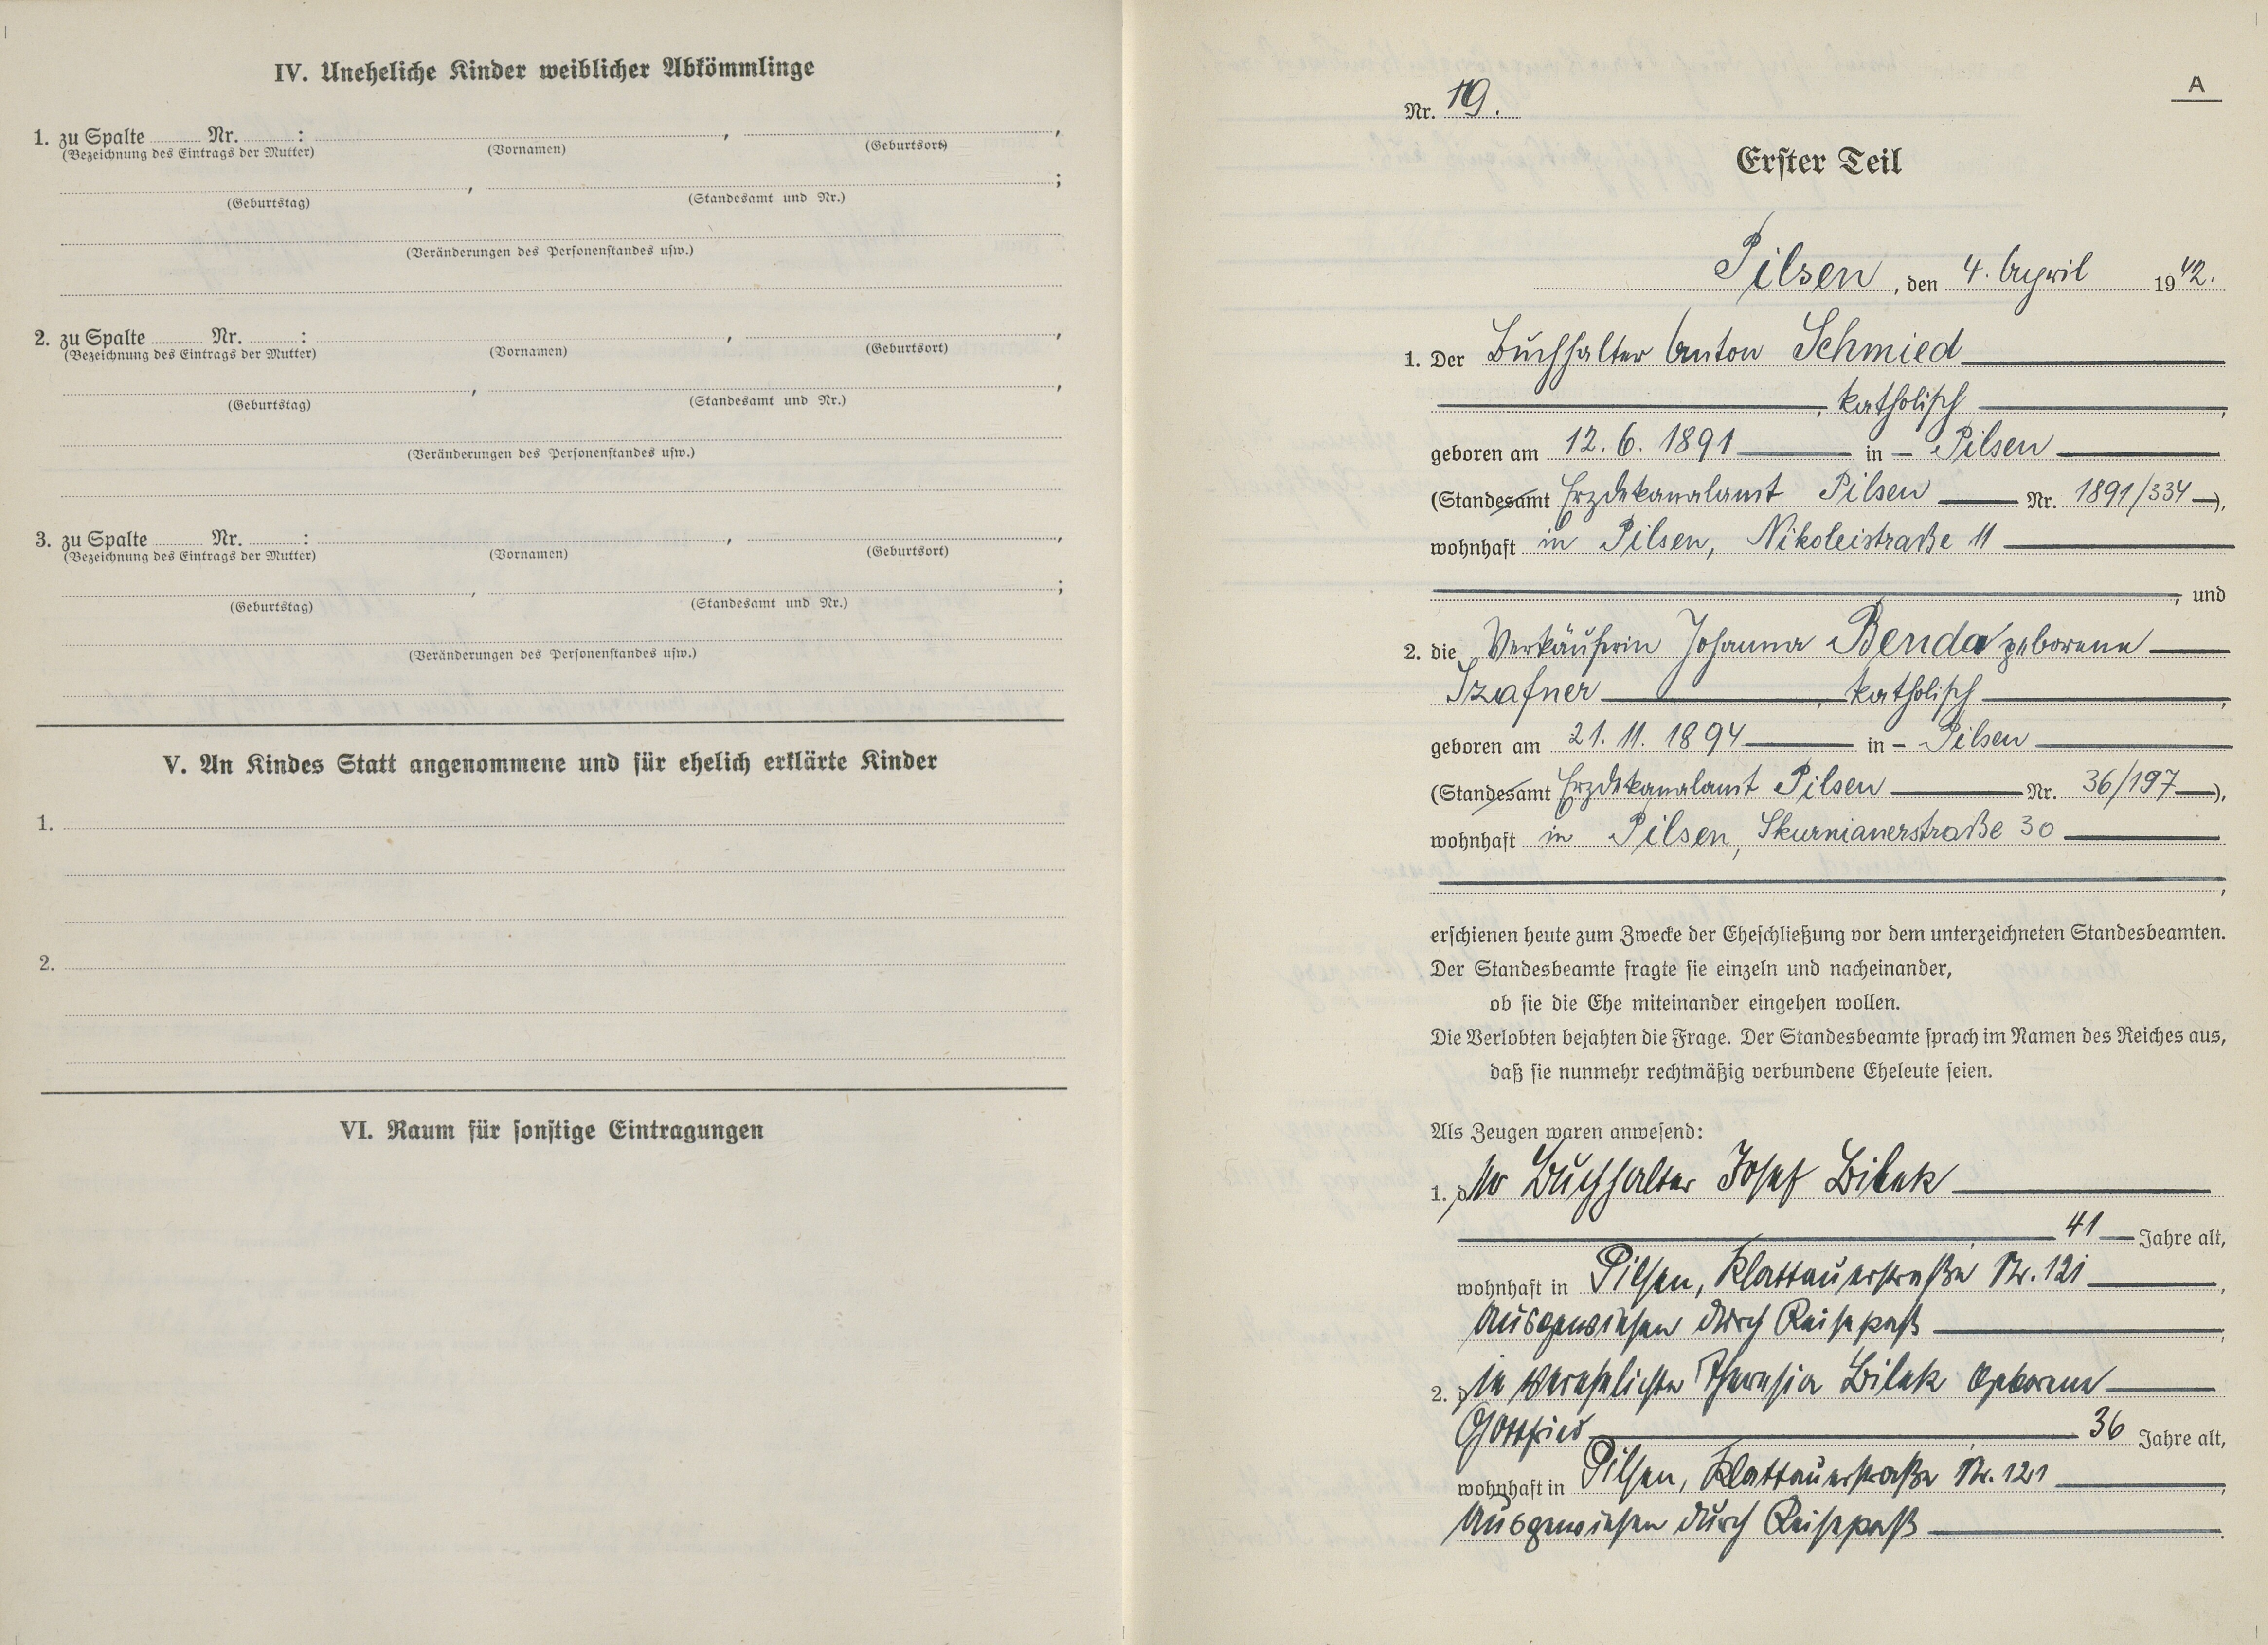 IV. Uneheliche Kinder weiblicher Abkömmlinge
1. zu Spalte ........ Nr. ........ : ........ , ........ ,
(Bezeichnung des Eintrags der Mutter) (Vornamen) (Geburtsort)
........ , ........ ;
(Geburtstag) (Standesamt und Nr.)
(Veränderungen des Personenstandes usw.)
2. zu Spalte ........ Nr. ........ : ........ , ........ ,
(Bezeichnung des Eintrags der Mutter) (Vornamen) (Geburtsort)
........ , ........ ,
(Geburtstag) (Standesamt und Nr.)
(Veränderungen des Personenstandes usw.)
3. zu Spalte ........ Nr. ........ : ........ , ........ ,
(Bezeichnung des Eintrags der Mutter) (Vornamen) (Geburtsort)
........ , ........ ;
(Geburtstag) (Standesamt und Nr.)
(Veränderungen des Personenstandes usw.)
V. An Kindes Statt angenommene und für ehelich erklärte Kinder
1.
2.
VI. Raum für sonstige Eintragungen
A
Nr. 19.
Erster Teil
Pilsen, den 4. April 1942.
1. Der Buchhalter Anton Schmied
, katholisch ,
geboren am 12. 6. 1891 in - Pilsen
(Standesamt Erzdekanalamt Pilsen Nr. 1891/334),
wohnhaft in Pilsen, Nikoleistraße 11
, und
2. die Verkäuferin Johanna Benda geborene
Szafner , katholisch ,
geboren am 21. 11. 1894 in - Pilsen
(Standesamt Erzdekanalamt Pilsen Nr. 36/197),
wohnhaft in Pilsen, Skurnianerstraße 30
,
erschienen heute zum Zwecke der Eheschließung vor dem unterzeichneten Standesbeamten.
Der Standesbeamte fragte sie einzeln und nacheinander,
ob sie die Ehe miteinander eingehen wollen.
Die Verlobten bejahten die Frage. Der Standesbeamte sprach im Namen des Reiches aus,
daß sie nunmehr rechtmäßig verbundene Eheleute seien.
Als Zeugen waren anwesend:
1. der Buchhalter Josef Bilek
41 Jahre alt,
wohnhaft in Pilsen, Klattauerstraße Nr. 121 ,
Ausgewiesen durch Reisepaß ,
2. die Verehelichte Theresia Bilek geborene
Gottfried 36 Jahre alt,
wohnhaft in Pilsen, Klattauerstraße Nr. 121 ,
Ausgewiesen durch Reisepaß .